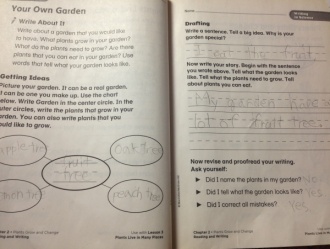 Your Own Garden
Write About It
Write about a garden that you would like
to have. What plants grow in your garden?
What do the plants need to grow? Are there
plants that you can eat in your garden? Use
words that tell what your garden looks like.
Getting Ideas
Picture your garden. It can be a real garden.
can be one you make up. Use the chart
below. Write Garden in the center circle. In the
outer circles, write the plants that grow in your
garden. You can also write plants that you
would like to grow.
apple tree
oak tree
fruit
tree
peach tree
Plants Grow and Change
Reading and Writing
Use with Lesson 2
Plants Live in Many Places
Writing
in Science
Drafting
Write a sentence. Tell a big idea. Why is your
garden special?
Now write your story. Begin with the sentence
you wrote above. Tell what the garden looks
like. Tell what the plants need to grow. Tell
about plants you can eat.
My garden have
lot of fruit tree
Now revise and proofread your writing.
Ask yourself:
Did I name the plants in my garden?
Did I tell what the garden looks like? Yes
Did I correct all mistakes? Yes
Chapter 2 • Plants Grow and Change
Reading and Writing
Use with Lesson 2
Plants Live in Many Places